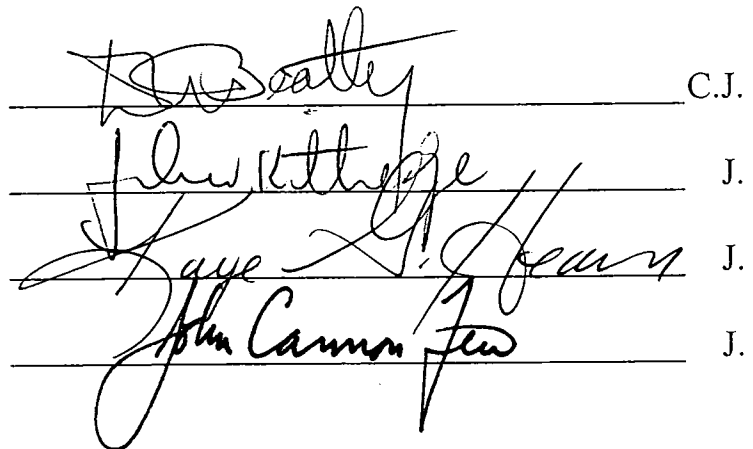 DW Beatty C.J.
John W. Kittredge J.
Kaye G. Hearn J.
John Cannon Few J.